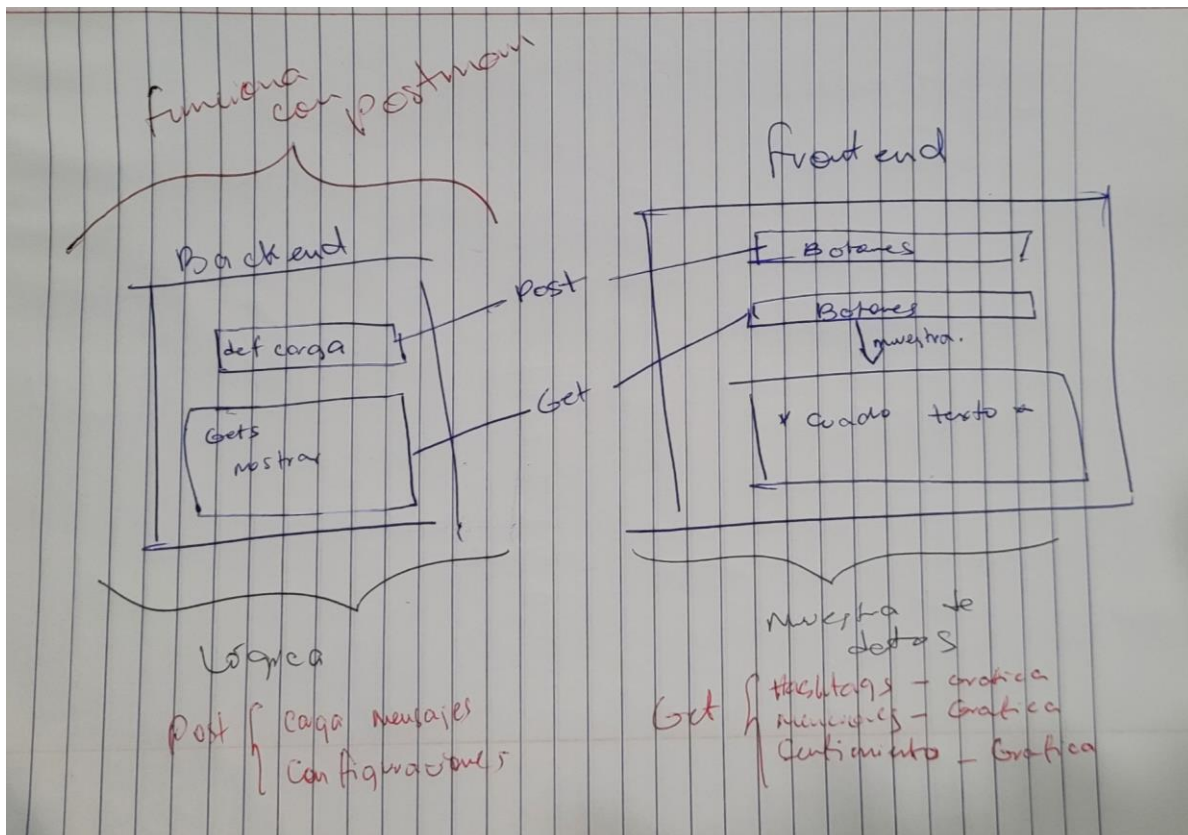 Funciona
con postman
Backend
def carga
Gets
mostrar
Post
Get
Frontend
Botones
Botones
muestra.
* Cuado texto *
Lógica
Post { Carga mensajes
Configuraciones
Muestra de
datos
Get { Hashtags - Grafica
menciones - Grafica
Sentimiento - Grafica